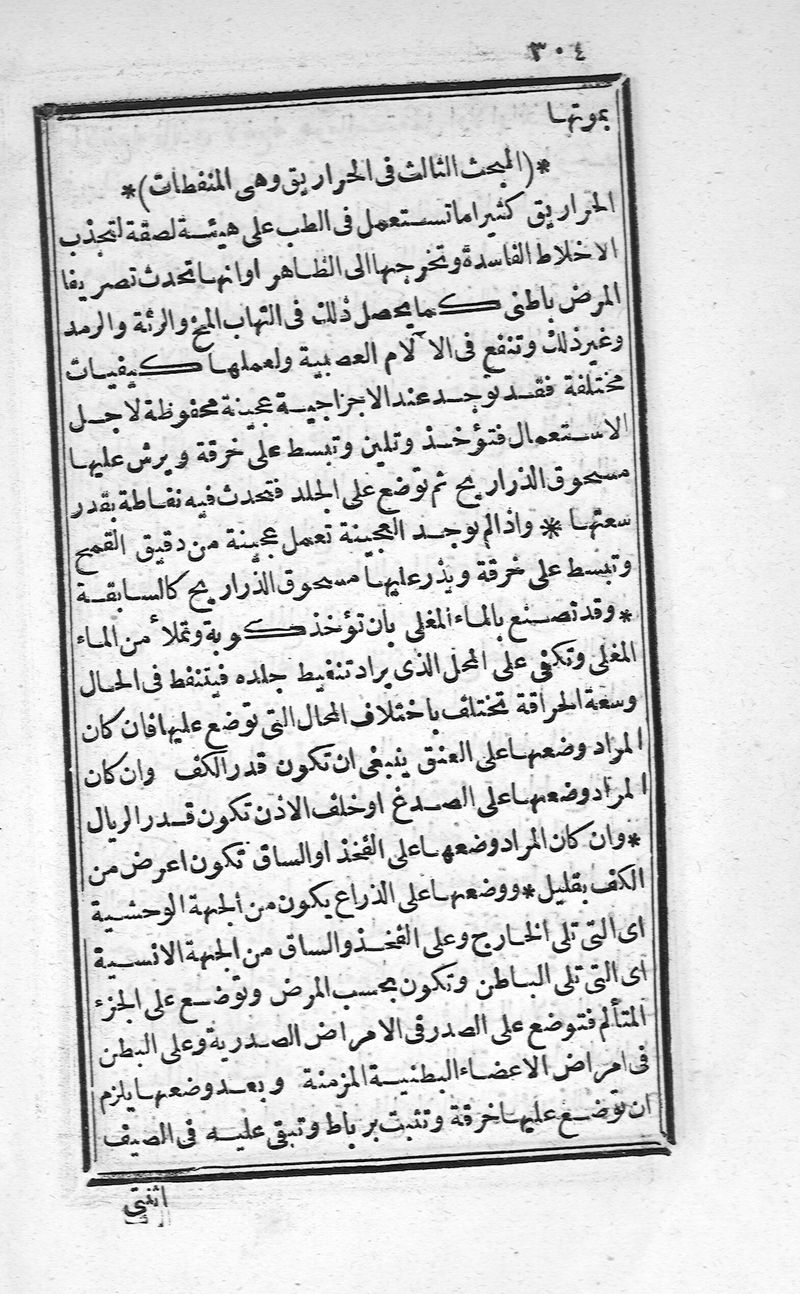 ٣٠٤
بموتها
*(المبحث الثالث فى الحراريق وهى المنفطات)*
الحراريق كثيرا ما تستعمل فى الطب على هيئة لصقة لتجذب
الاخلاط الفاسدة وتخرجها الى الظاهر او انها تحدث تصريفا
لمرض باطنى كما يحصل ذلك فى التهاب المخ والرئة والرمد
وغير ذلك وتنفع فى الآلام العصبية ولعملها كيفيات
مختلفة فقد توجد عند الاجزاجية عجينة محفوظة لاجل
الاستعمال فتؤخذ وتلين وتبسط على خرقة ويرش عليها
مسحوق الذراريح ثم توضع على الجلد فتحدث فيه نفاطة بقدر
سعتها * واذا لم توجد العجينة تعمل عجينة من دقيق القمح
وتبسط على خرقة ويذر عليها مسحوق الذراريح كالسابقة
* وقد تصنع بالماء المغلى بان تؤخذ كوبة وتملأ من الماء
المغلى وتكفى على المحل الذى يراد تنفيط جلده فيتنفط فى الحال
وسعة الحراقة تختلف باختلاف المحال التى توضع عليها فان كان
المراد وضعها على العنق ينبغى ان تكون قدر الكف وان كان
المراد وضعها على الصدغ او خلف الاذن تكون قدر الريال
* وان كان المراد وضعها على الفخذ او الساق تكون اعرض من
الكف بقليل * ووضعها على الذراع يكون من الجهة الوحشية
اى التى تلى الخارج وعلى الفخذ والساق من الجهة الانسية
اى التى تلى الباطن وتكون بحسب المرض وتوضع على الجزء
المتألم فتوضع على الصدر فى الامراض الصدرية وعلى البطن
فى امراض الاعضاء البطنية المزمنة وبعد وضعها يلزم
ان توضع عليها خرقة وتثبت برباط وتبقى عليه فى الصيف
اثنتى